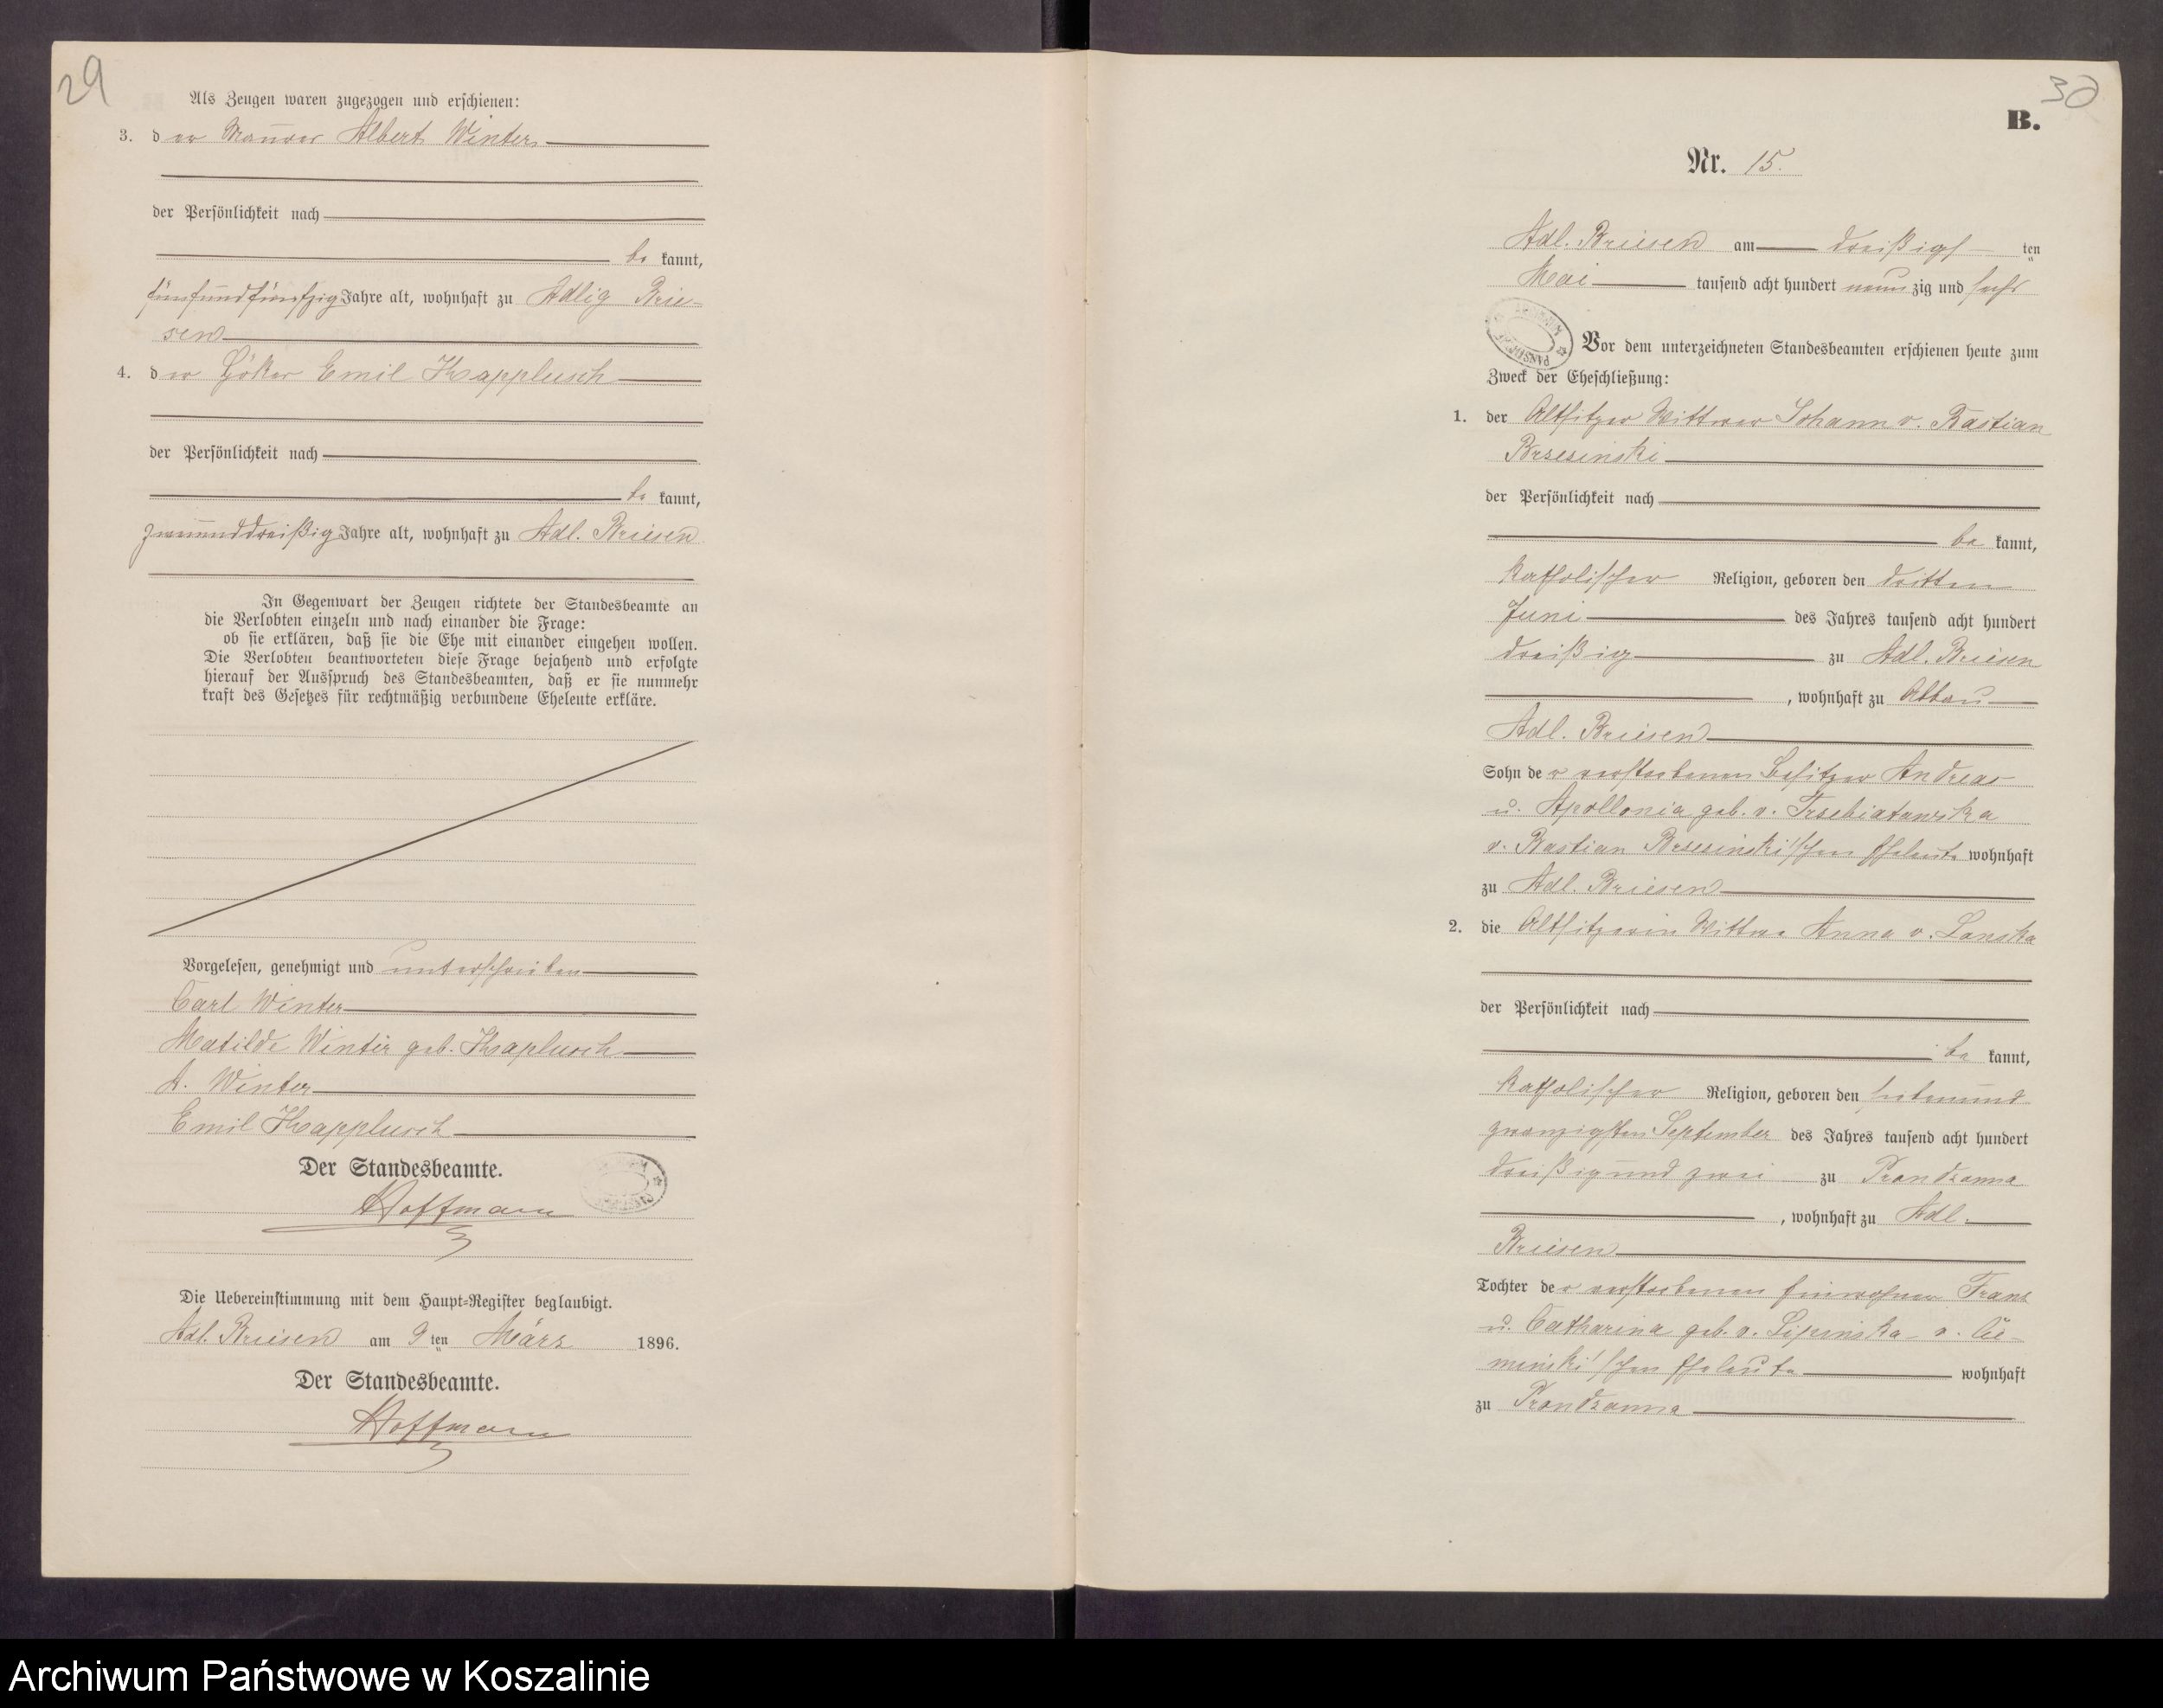 29
Als Zeugen waren zugezogen und erschienen:
3. der Maurer Albert Winter
der Persönlichkeit nach
be kannt,
fünfundfünfzig Jahre alt, wohnhaft zu Adlig Brie-
sen
4. der Höker Emil Kapplusch
der Persönlichkeit nach
be kannt,
zweiunddreißig Jahre alt, wohnhaft zu Adl. Briesen
In Gegenwart der Zeugen richtete der Standesbeamte an
die Verlobten einzeln und nach einander die Frage:
ob sie erklären, daß sie die Ehe mit einander eingehen wollen.
Die Verlobten beantworteten diese Frage bejahend und erfolgte
hierauf der Ausspruch des Standesbeamten, daß er sie nunmehr
kraft des Gesetzes für rechtmäßig verbundene Eheleute erkläre.
Vorgelesen, genehmigt und unterschrieben
Carl Winter
Matilde Winter geb. Kaplusch
A. Winter
Emil Kapplusch
Der Standesbeamte.
Hoffmann
Die Uebereinstimmung mit dem Haupt-Register beglaubigt.
Adl. Briesen am 9ten März 1896.
Der Standesbeamte.
Hoffmann
30
B.
Nr. 15.
Adl. Briesen am dreißigs ten
Mai tausend acht hundert neunzig und sechs
Vor dem unterzeichneten Standesbeamten erschienen heute zum
Zweck der Eheschließung:
1. der Altsitzer Wittwer Johann v. Bastian
Brzesinski
der Persönlichkeit nach
be kannt,
katholischer Religion, geboren den dritten
Juni des Jahres tausend acht hundert
dreißig zu Adl. Briesen
, wohnhaft zu Abbau
Adl. Briesen
Sohn der verstorbenen Besitzer Andreas
u. Apollonia geb. v. Trzebiatowska
v. Bastian Brzesinski'schen Eheleute wohnhaft
zu Adl. Briesen
2. die Altsitzerin Wittwe Anna v. Lonska
der Persönlichkeit nach
be kannt,
katholischer Religion, geboren den siebenund
zwanzigsten September des Jahres tausend acht hundert
dreißig und zwei zu Prondzonna
, wohnhaft zu Adl.
Briesen
Tochter der verstorbenen Einwohner Franz
u. Catharina geb. v. Lipinska v.
minski'schen Eheleute wohnhaft
zu Prondzonna
Archiwum Państwowe w Koszalinie